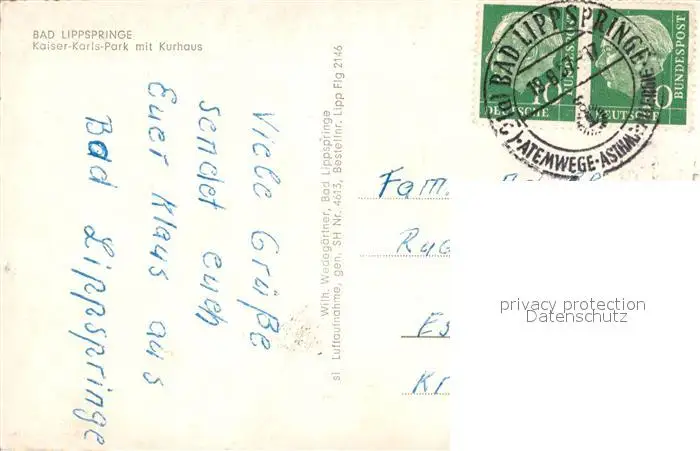 BAD LIPPSPRINGE
Kaiser-Karls-Park mit Kurhaus
Viele Grüße
sendet euch
Euer Klaus aus
Bad Lippspringe
Wilh. Wedegärtner, Bad Lippspringe
si Luftaufnahme, gen. SH Nr. 4613, Bestellnr. Lipp Flg 2146
BAD LIPPSPRINGE
ATEMWEGE-ASTHMA
10
DEUTSCHE BUNDESPOST
DEUTSCHE BUNDESPOST
Fam.
privacy protection
Datenschutz